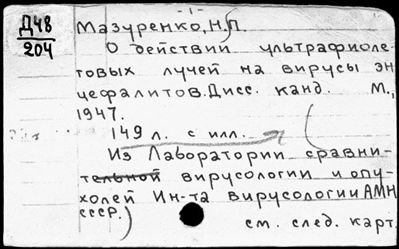 Д48
204
Мазуренко, Н.П.
О действий ультрафиоле-
товых лучей на вирусы эн
цефалитов. Дисс. канд. М.,
1947.
149 л. с илл.
(Из Лаборатории сравни-
тельной вирусологии и опу-
холей Ин-та вирусологии АМН
СССР.)
см. след. карт.